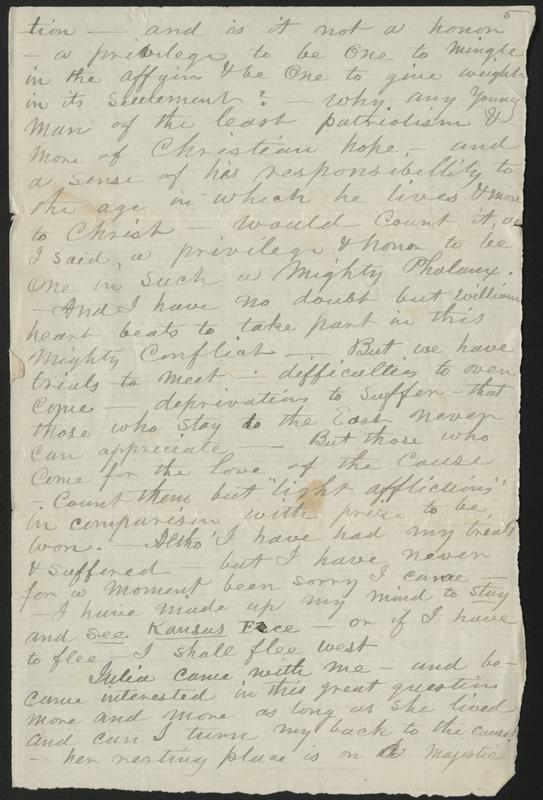 5
tion — and is it not a honor
— a privilege to be One to mingle
in the affairs & be One to give weight
in its settlement? — why any Young
Man of the least patriotism &
more of Christian hope, — and
a sense of his responsibility to
the age in which he lives & more
to Christ — would count it, as
I said, a privilege & honor to be
One in such a Mighty Phalanx.
— And I have no doubt but William
heart beats to take part in this
Mighty Conflict — But we have
trials to meet — difficulties to over
come — deprivations to suffer — that
those who stay to the East never
can appreciate — But those who
come for the love of the Cause
— Count them but "light afflictions"
in comparison with prize to be
won. — Altho' I have had my trials
& suffered — but I have never
for a moment been sorry I came —
— I have made up my mind to stay
and see Kansas Free — or if I have
to flee I shall flee west
Julia came with me — and be-
came interested in this great question
more and more as long as she lived
and can I turn my back to the cause?
— her resting place is on a Majestic